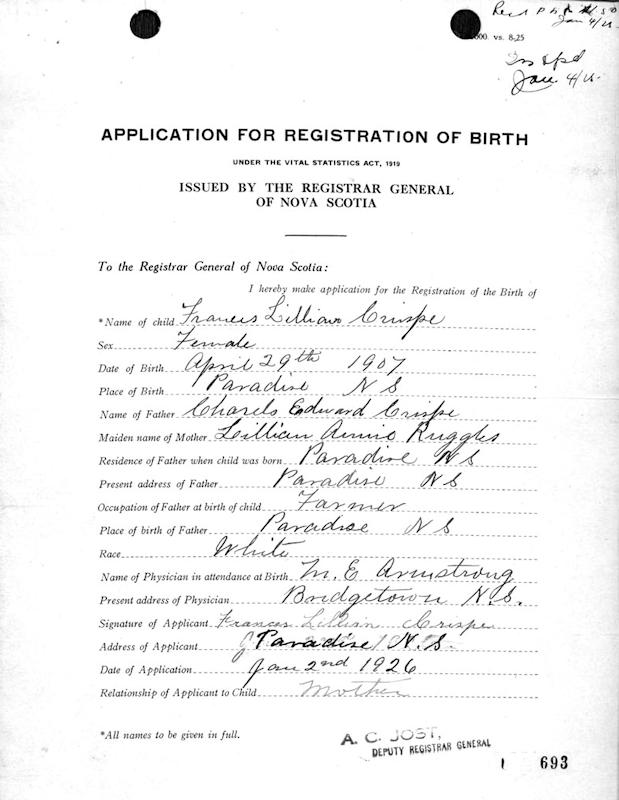 Jan 4/26
000. vs. 8,25
Jan 4/26
APPLICATION FOR REGISTRATION OF BIRTH
UNDER THE VITAL STATISTICS ACT, 1919
ISSUED BY THE REGISTRAR GENERAL
OF NOVA SCOTIA
To the Registrar General of Nova Scotia:
I hereby make application for the Registration of the Birth of
*Name of child Francis Lillian Crispe
Sex Female
Date of Birth April 29th 1907
Place of Birth Paradise N S
Name of Father Charels Edward Crispe
Maiden name of Mother Lillian Annie Ruggles
Residence of Father when child was born Paradise N S
Present address of Father Paradise N S
Occupation of Father at birth of child Farmer
Place of birth of Father Paradise N S
Race White
Name of Physician in attendance at Birth M. E Armstrong
Present address of Physician Bridgetown N.S.
Signature of Applicant Frances Lillian Crispe
Address of Applicant Paradise N.S.
Date of Application Jan 2nd 1926
Relationship of Applicant to Child Mother
*All names to be given in full.
A. C. JOST,
DEPUTY REGISTRAR GENERAL
693